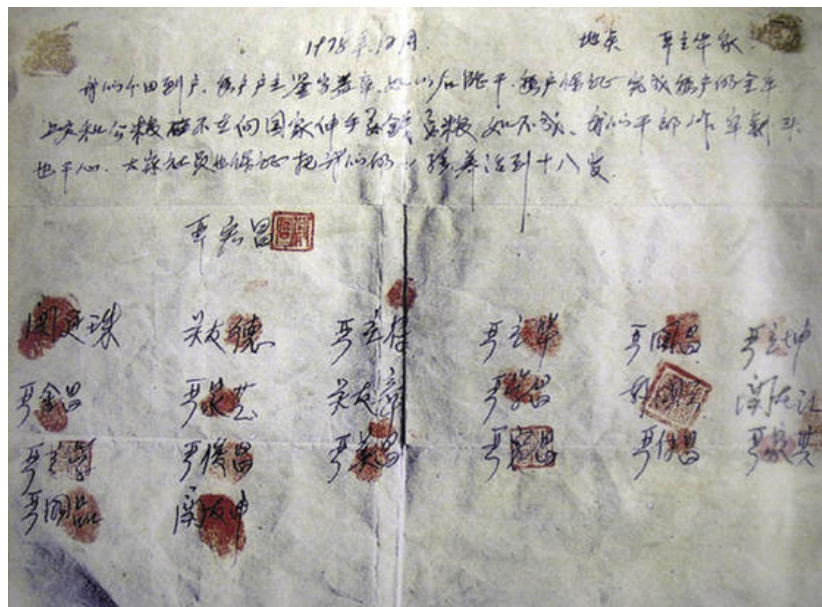 1978年12月. 地点 严立华家.
我们分田到户,每户户主签字盖章,如以后能干,每户保证完成每户的全年
上交和公粮不在向国家伸手要钱要粮,如不成,我们干部作牢刹头
也干心,大家社员也保证把我们的小孩养活到十八岁.
严宏昌
关延珠 关友德 严立符 严立华 严国昌 严立坤
严金昌 严家芝 关友章 严学昌 韩国云 关友江
严立学 严俊昌 严美昌 严宏昌 严付昌 严家其
严国品 关友申